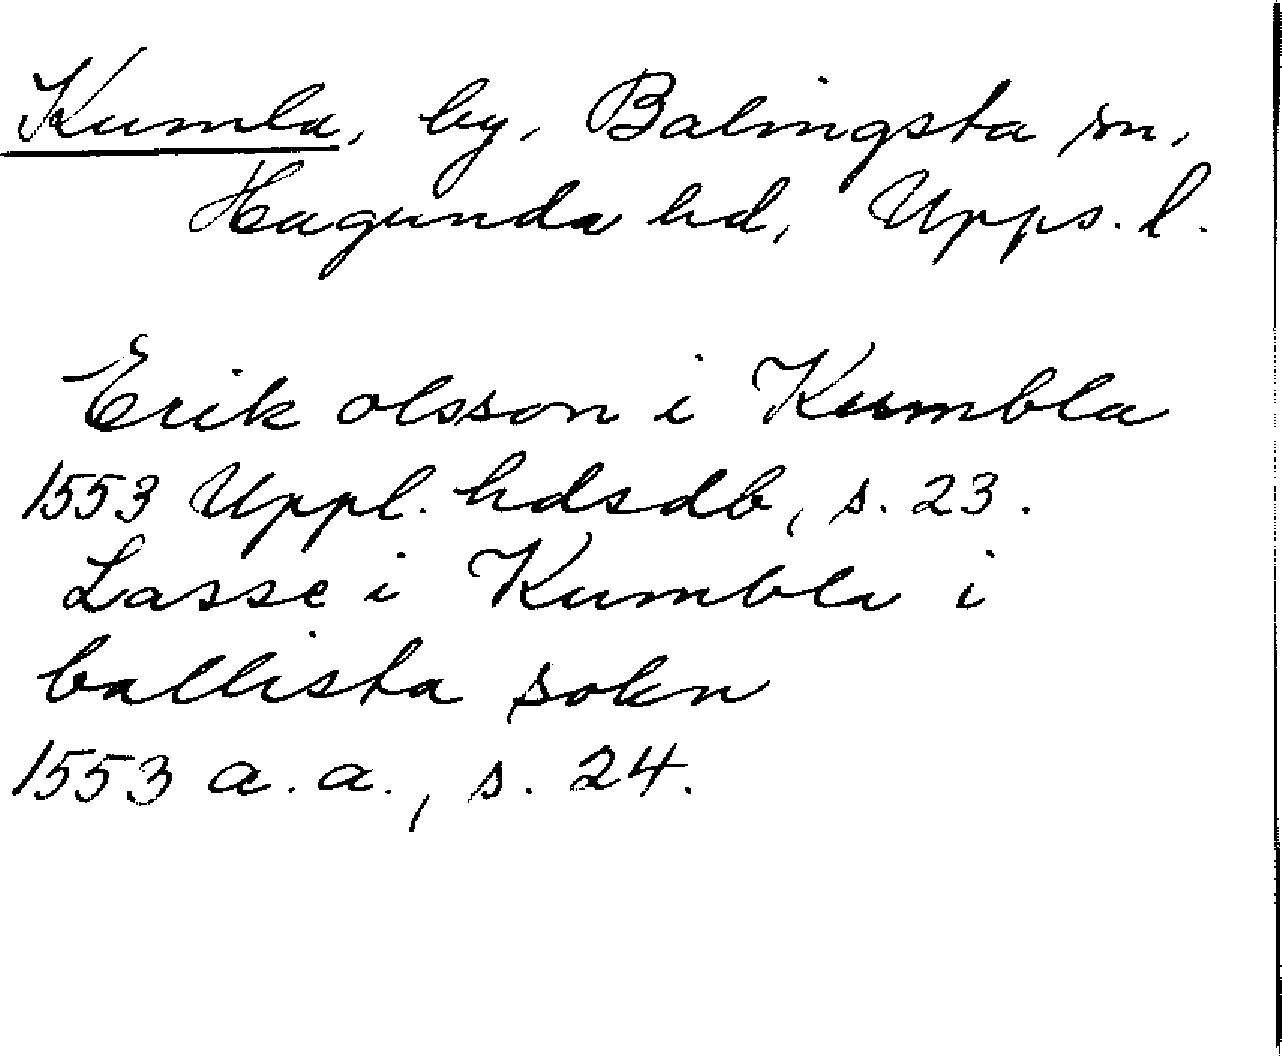 Kumla, by, Balingsta sn,
Hagunda hd, Upps. l.
Erik olsson i Kumbla
1553 Uppl. hdsdb, s. 23.
Lasse i Kumbla i
ballista sokn
1553 a. a., s. 24.